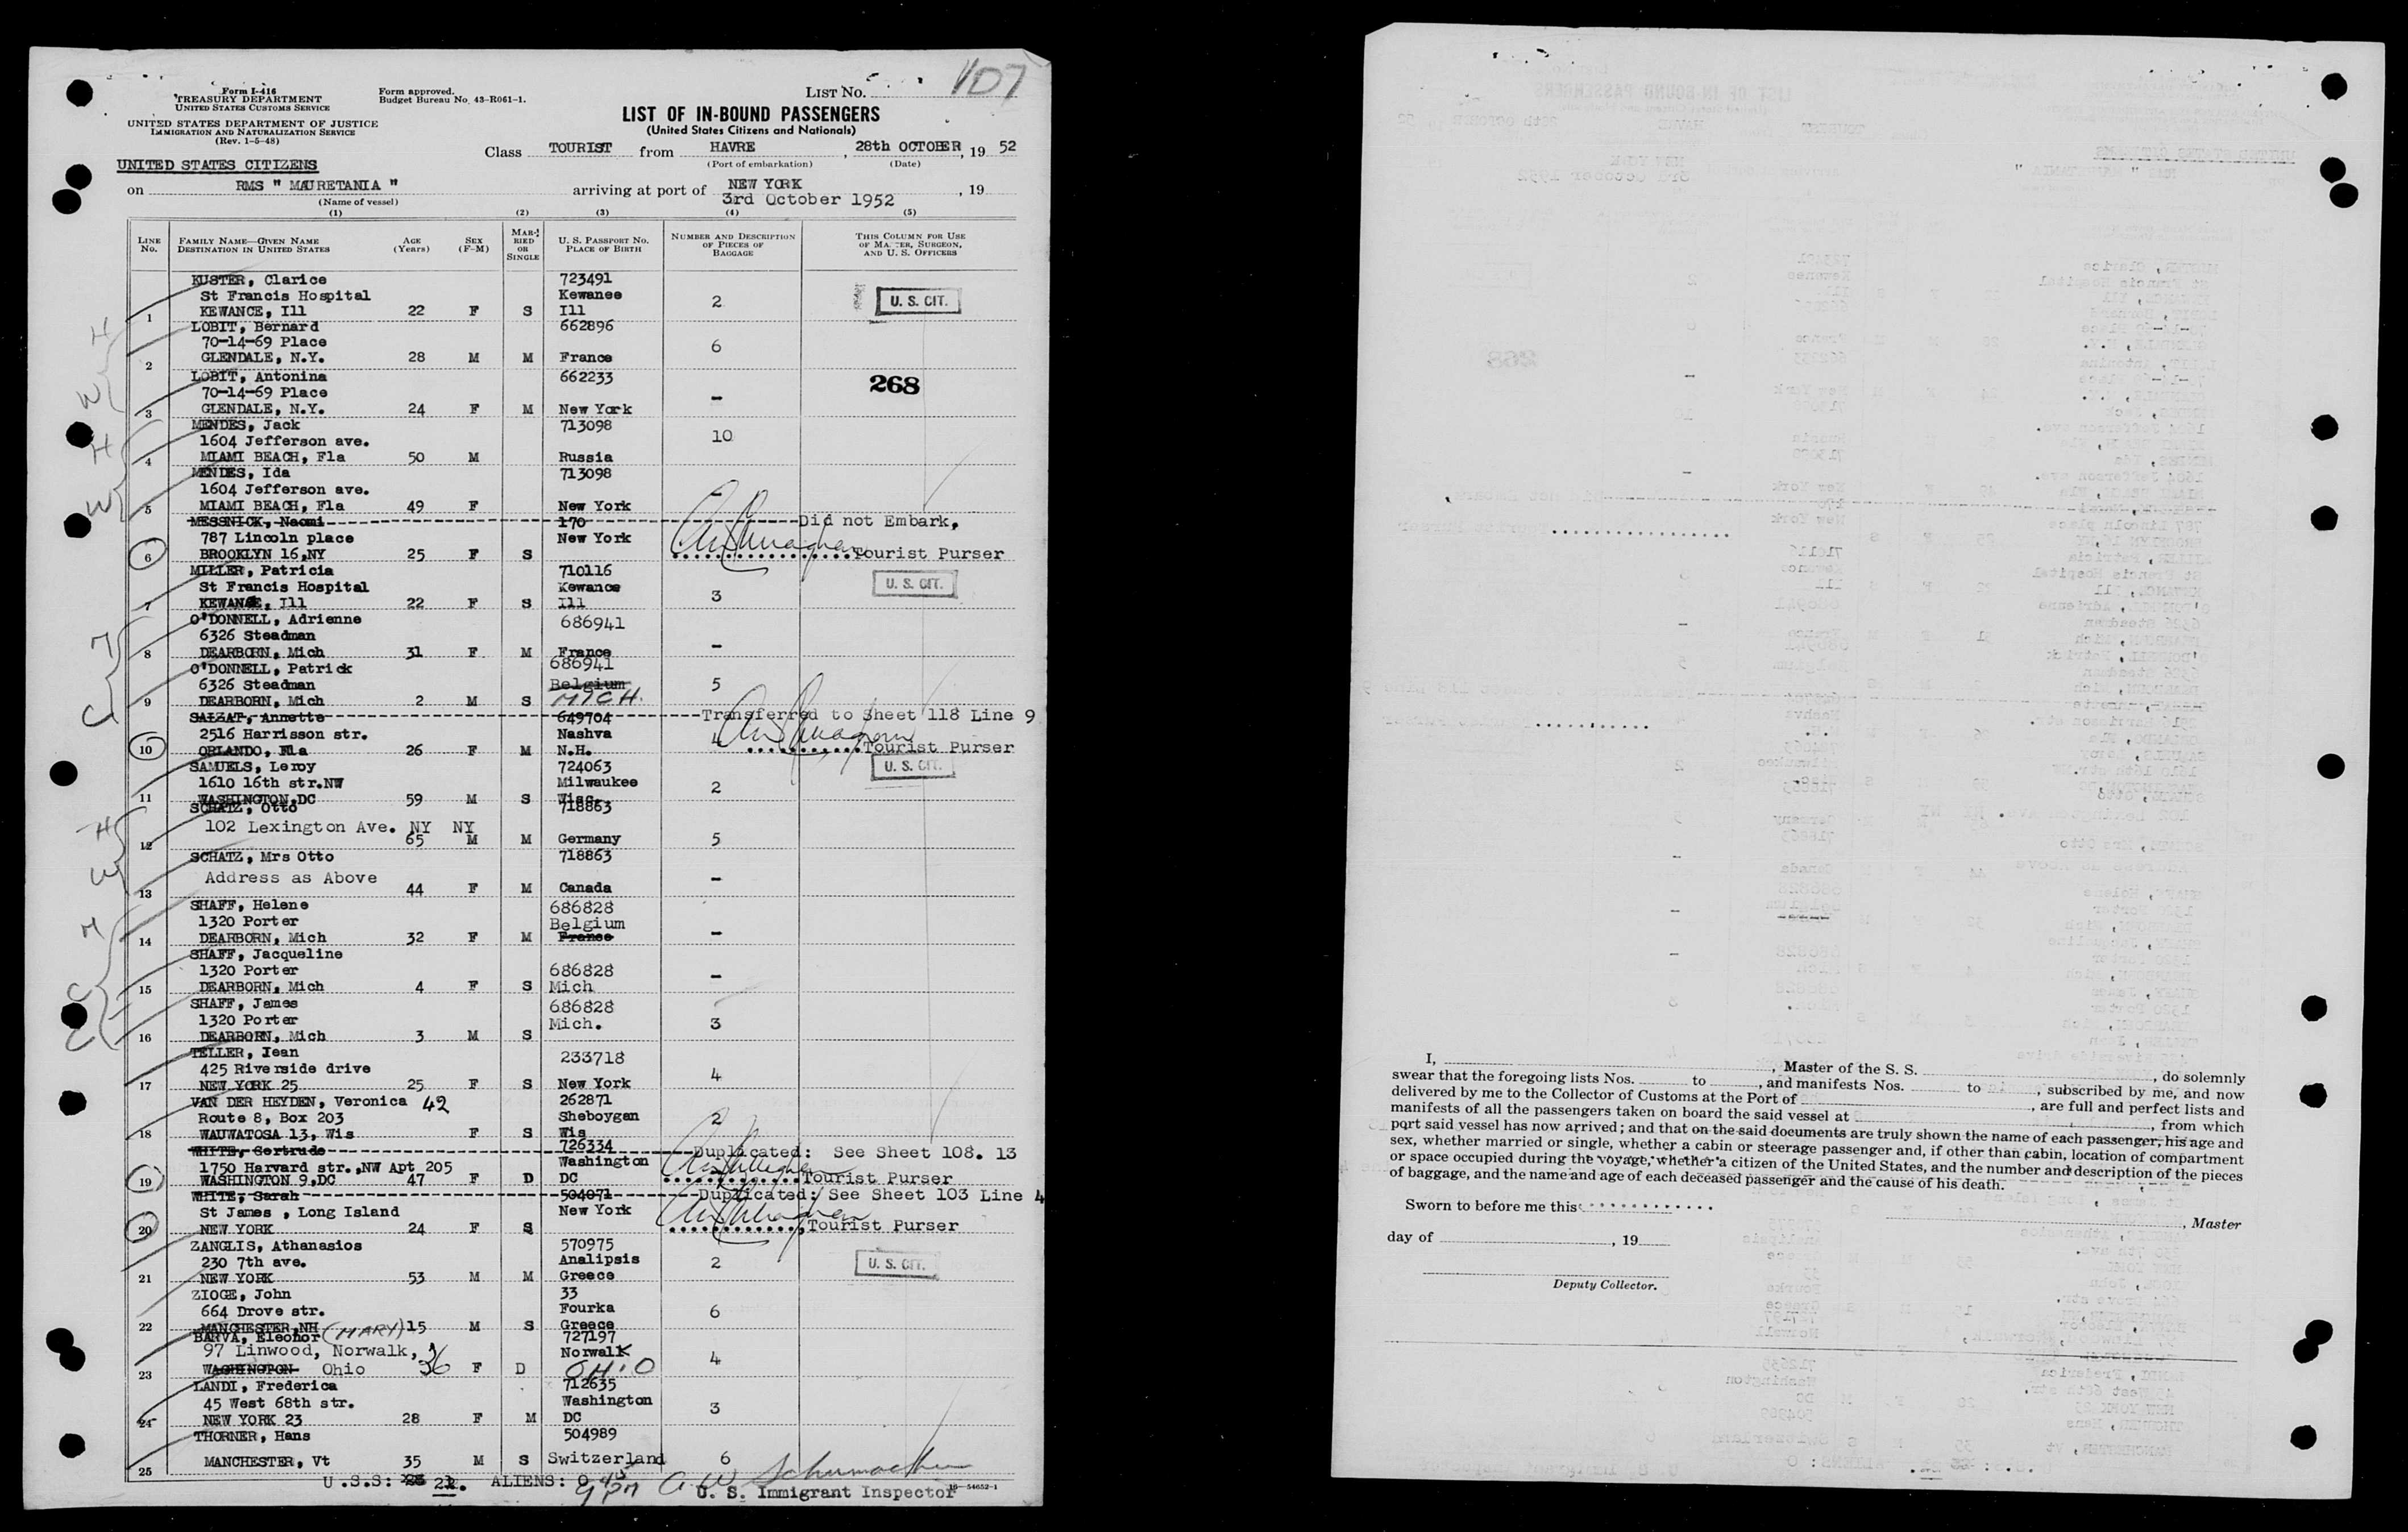 107
Form I-416
TREASURY DEPARTMENT
UNITED STATES CUSTOMS SERVICE
UNITED STATES DEPARTMENT OF JUSTICE
IMMIGRATION AND NATURALIZATION SERVICE
(Rev. 1-5-48)
Form approved.
Budget Bureau No. 43-R061-1.
LIST NO.
LIST OF IN-BOUND PASSENGERS
(United States Citizens and Nationals)
Class TOURIST from HAVRE, 28th OCTOBER, 19 52
(Port of embarkation) (Date)
UNITED STATES CITIZENS
on RMS " MAURETANIA " arriving at port of NEW YORK, 19
(Name of vessel) 3rd October 1952
(1) (2) (3) (4) (5)
LINE No. FAMILY NAME—GIVEN NAME DESTINATION IN UNITED STATES AGE (Years) SEX (F-M) MARRIED OR SINGLE U. S. PASSPORT NO. PLACE OF BIRTH NUMBER AND DESCRIPTION OF PIECES OF BAGGAGE THIS COLUMN FOR USE OF MASTER, SURGEON, AND U. S. OFFICERS
KUSTER, Clarice 723491
St Francis Hospital Kewanee 2 U. S. CIT.
1 KEWANCE, Ill 22 F S Ill
LOBIT, Bernard 662896
70-14-69 Place 6
2 GLENDALE, N.Y. 28 M M France
LOBIT, Antonina 662233 268
70-14-69 Place -
3 GLENDALE, N.Y. 24 F M New York
MENDES, Jack 713098
1604 Jefferson ave. 10
4 MIAMI BEACH, Fla 50 M Russia
MENDES, Ida 713098
1604 Jefferson ave. -
5 MIAMI BEACH, Fla 49 F New York
MESSNICK, Naomi 170 Did not Embark,
787 Lincoln place New York
6 BROOKLYN 16,NY 25 F S Tourist Purser
MILLER, Patricia 710116
St Francis Hospital Kewance 3 U. S. CIT.
7 KEWANCE, Ill 22 F S Ill
O'DONNELL, Adrienne 686941
6326 Steadman -
8 DEARBORN, Mich 31 F M France
O'DONNELL, Patrick 686941
6326 Steadman Belgium 5
9 DEARBORN, Mich 2 M S MICH.
SALZAT, Annette 649704 Transferred to Sheet 118 Line 9
2516 Harrisson str. Nashva
10 ORLANDO, Fla 26 F M N.H. Tourist Purser
SAMUELS, Leroy 724063 U. S. CIT.
1610 16th str.NW Milwaukee 2
11 WASHINGTON,DC 59 M S Wisc.
SCHATZ, Otto 718863
102 Lexington Ave. NY NY
12 65 M M Germany 5
SCHATZ, Mrs Otto 718863
Address as Above -
13 44 F M Canada
SHAFF, Helene 686828
1320 Porter Belgium -
14 DEARBORN, Mich 32 F M France
SHAFF, Jacqueline
1320 Porter 686828 -
15 DEARBORN, Mich 4 F S Mich
SHAFF, James 686828
1320 Porter Mich. 3
16 DEARBORN, Mich 3 M S
TELLER, Jean 233718
425 Riverside drive 4
17 NEW YORK 25 25 F S New York
VAN DER HEYDEN, Veronica 42 262871
Route 8, Box 203 Sheboygan 2
18 WAUWATOSA 13, Wis F S Wis
WHITE, Gertrude 726334 Duplicated: See Sheet 108. 13
1750 Harvard str.,NW Apt 205 Washington
19 WASHINGTON 9,DC 47 F D DC Tourist Purser
WHITE, Sarah 504071 Duplicated: See Sheet 103 Line 4
St James , Long Island New York
20 NEW YORK 24 F S Tourist Purser
ZANGLIS, Athanasios 570975
230 7th ave. Analipsis 2 U. S. CIT.
21 NEW YORK 53 M M Greece
ZIOGE, John 33
664 Drove str. Fourka 6
22 MANCHESTER,NH 15 M S Greece
BARVA, Eleonor (MARY) 727197
97 Linwood, Norwalk, Norwalk 4
23 WASHINGTON Ohio 36 F D OHIO
LANDI, Frederica 712635
45 West 68th str. Washington 3
24 NEW YORK 23 28 F M DC
THORNER, Hans 504989
25 MANCHESTER, Vt 35 M S Switzerland 6
U.S.S: 22. ALIENS: 0
U. S. Immigrant Inspector
16-54652-1
I, , Master of the S. S. , do solemnly
swear that the foregoing lists Nos. to , and manifests Nos. to , subscribed by me, and now
delivered by me to the Collector of Customs at the Port of , are full and perfect lists and
manifests of all the passengers taken on board the said vessel at , from which
port said vessel has now arrived; and that on the said documents are truly shown the name of each passenger, his age and
sex, whether married or single, whether a cabin or steerage passenger and, if other than cabin, location of compartment
or space occupied during the voyage, whether a citizen of the United States, and the number and description of the pieces
of baggage, and the name and age of each deceased passenger and the cause of his death.
Sworn to before me this
, Master
day of , 19
Deputy Collector.